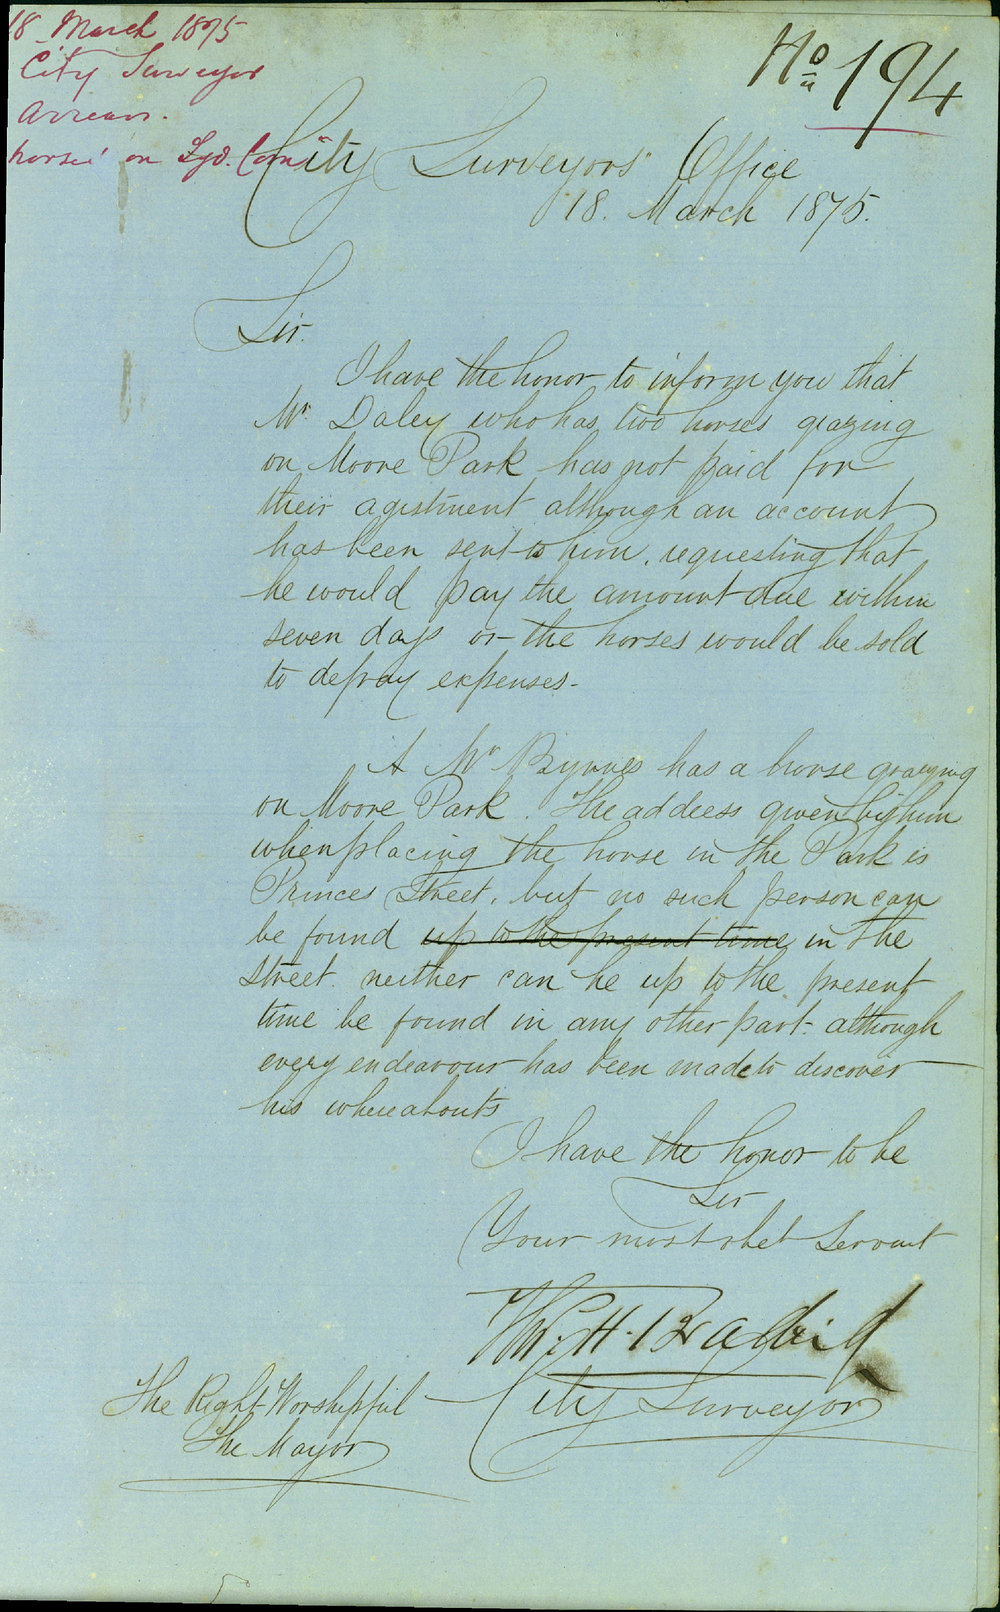 18 March 1875
City Surveyor
Arrears.
horses on Syd. Com
No 194
City Surveyors' Office
18. March 1875.
Sir.
I have the honor to inform you that
Mr Daley who has two horses grazing
on Moore Park has not paid for
their agistment although an account
has been sent to him, requesting that
he would pay the amount due within
seven days or the horses would be sold
to defray expenses-
A Mr Byrnes has a horse grazing
on Moore Park. The address given by him
when placing the horse in the Park is
Princes Street, but no such person can
be found up to the present time in the
street. neither can he up to the present
time be found in any other part- although
every endeavour has been made to discover
his whereabouts
I have the honor to be
Sir
Your most obet Servant
City Surveyor
The Right Worshipful
The Mayor